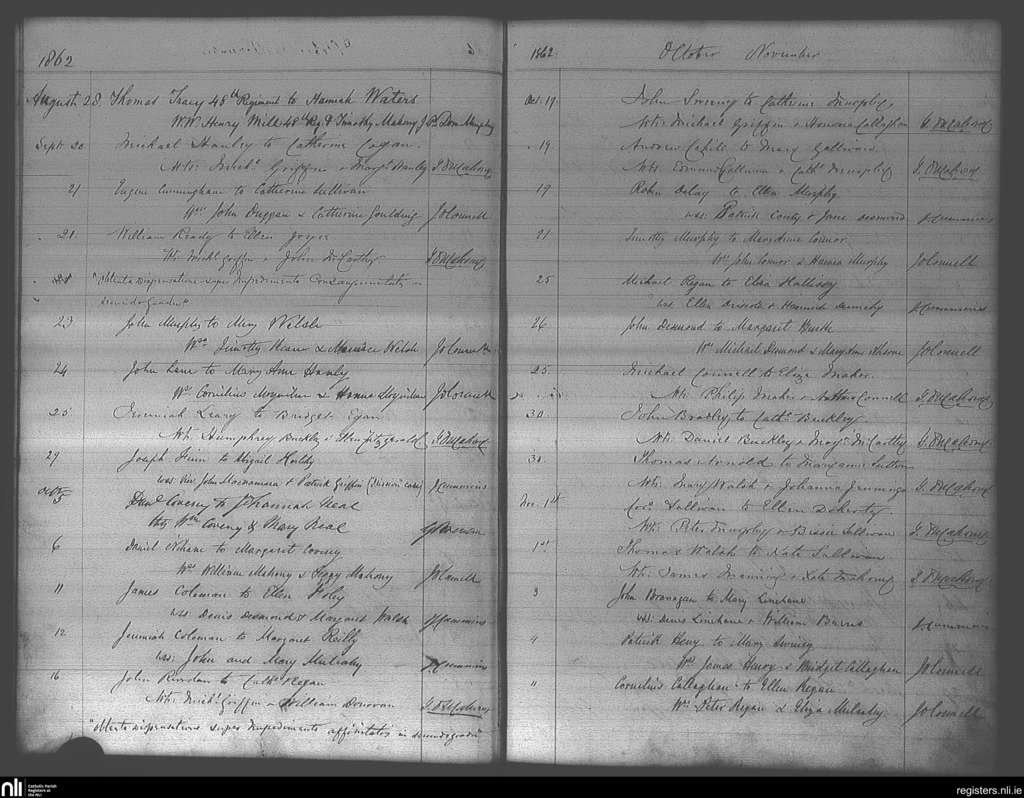 1862
August 28. Thomas Tracy 48th Regiment to Hannah Waters
WW. Henry Mills 48th Reg & Timothy Mahony J Pr. Dan Murphy
Sept. 20 Michael Hanly to Catherine Cogan.
Wts: Michl. Griffin & Margt Hanly J. O'Mahony
21 Eugene Cunningham to Catherine Sullivan
Wss John Duggan & Catherine Goulding JO'Connell
21 William Ready to Ellen Joyce
Wts Michl Griffin & John McCarthy J. O'Mahony
"Obtenta dispensatione super Impedimento Consanguinitatis in
23 John Murphy to Mary Welsh
Wss Timothy & Maurice Welsh JO'Connell
24 John Lane to Mary Anne Hanly
Wss Cornelius Moynihan & Hanna Moynihan JO'Connell
25 Jeremiah Leary to Bridget Egan
Wts: Humphrey Buckley & Fitzgerald J. O'Mahony
29 Joseph Finn to Abigail Herlihy
was John Macnamara & Patrick Griffin JCummins
Octr 5 Danl Coveny to Johannah Neal
Wts Wm Coveny & Mary Neal
6 Daniel to Margaret Coveny
Wss William Mahony & Peggy Mahony JO'Connell
11 James Coleman to Ellen Foley
was: Denis Desmond & Margaret Walsh JCummins
12 Jeremiah Coleman to Margaret Reilly
was: John and Mary Mulcahy JCummins
16 John Riordan to Cathe Regan
Wts: Michl Griffin & William Donovan J. O'Mahony
"Obtenta dispensatione super Impedimento affinitatis in secundo gradu"
1862. October November
Oct. 19 John Sweeny to Catherine Murphy
Wts: Michael Griffin & Honora Callaghan J. O'Mahony
19 Andrew Cahill to Mary
Wts: Edmond & Cathe Murphy J. O'Mahony
19 Robin Daly to Ellen Murphy
was: Patrick & Jane Desmond JCummins
21 Timothy Murphy to Mary Anne Connor
Wss John Connor & Hanna Murphy JO'Connell
25 Michael Regan to Eliza Hallissy
was Ellen Driscoll & Dennehy JCummins
26 John Desmond to Margaret Burke
Wss Michael Desmond & Mary Anne JO'Connell
25 Michael Connell to Eliza
Wts: Philip & Connell J. O'Mahony
30. John Bradley to Cathe Buckley
Wts: Daniel Buckley & Margt McCarthy J. O'Mahony
Thomas Arnold to Maryanne Sutton
Wts: Mary Walsh & Johanna Jennings J. O'Mahony
Nov. 1st Sullivan to Ellen Doherty.
Wts: Peter Murphy & Bessie Sullivan J. O'Mahony
1st Thomas Walsh to Kate Sullivan
Wts: James Manning & Kate Mahony J. O'Mahony
3 John Branagan to Mary Linehane
was: Denis Linehane & William Burns JCummins
9 Patrick Henry to Mary Sweeny
Wss James Henry & Bridget Callaghan JO'Connell
11 Cornelius Callaghan to Ellen Regan
Wss Peter Regan & Eliza Mulcahy JO'Connell
nli Catholic Parish Registers at the NLI
registers.nli.ie